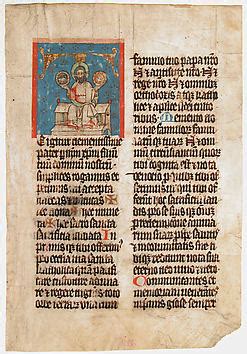 E igitur clementissime
pater per ihm xpm filiu
tuum dominum nostrum
supplices rogamus et
petimus uti accepta
habeas
hec dona hec mune
ra hec sancta sacri
ficia illibata In
primis que tibi offerim
pro ecclesia tua sancta
catholica quam pacifi
care custodire aduna
re et regere digneris toto
orbe terrarum una cum
famulo tuo papa nro
N et antistite nro N et
rege nro N et omnibus
orthodoxis atque catho
lice et aplice fidei culto
ribus Memento do
mine famulorum famu
larumque tuarum N et om
nium circumstantium quorum
tibi fides cognita est et nota
deuocio pro quibus tibi offe
rimus uel qui tibi offerunt
hoc sacrificium lau
dis pro se suisque omnibus
pro redempcione anima
rum suarum pro spe salutis
et incolumitatis sue ti
bique reddunt uota sua
eterno deo uiuo et uero
Communicantes et
memoriam uenerantes
inprimis gloriose semper